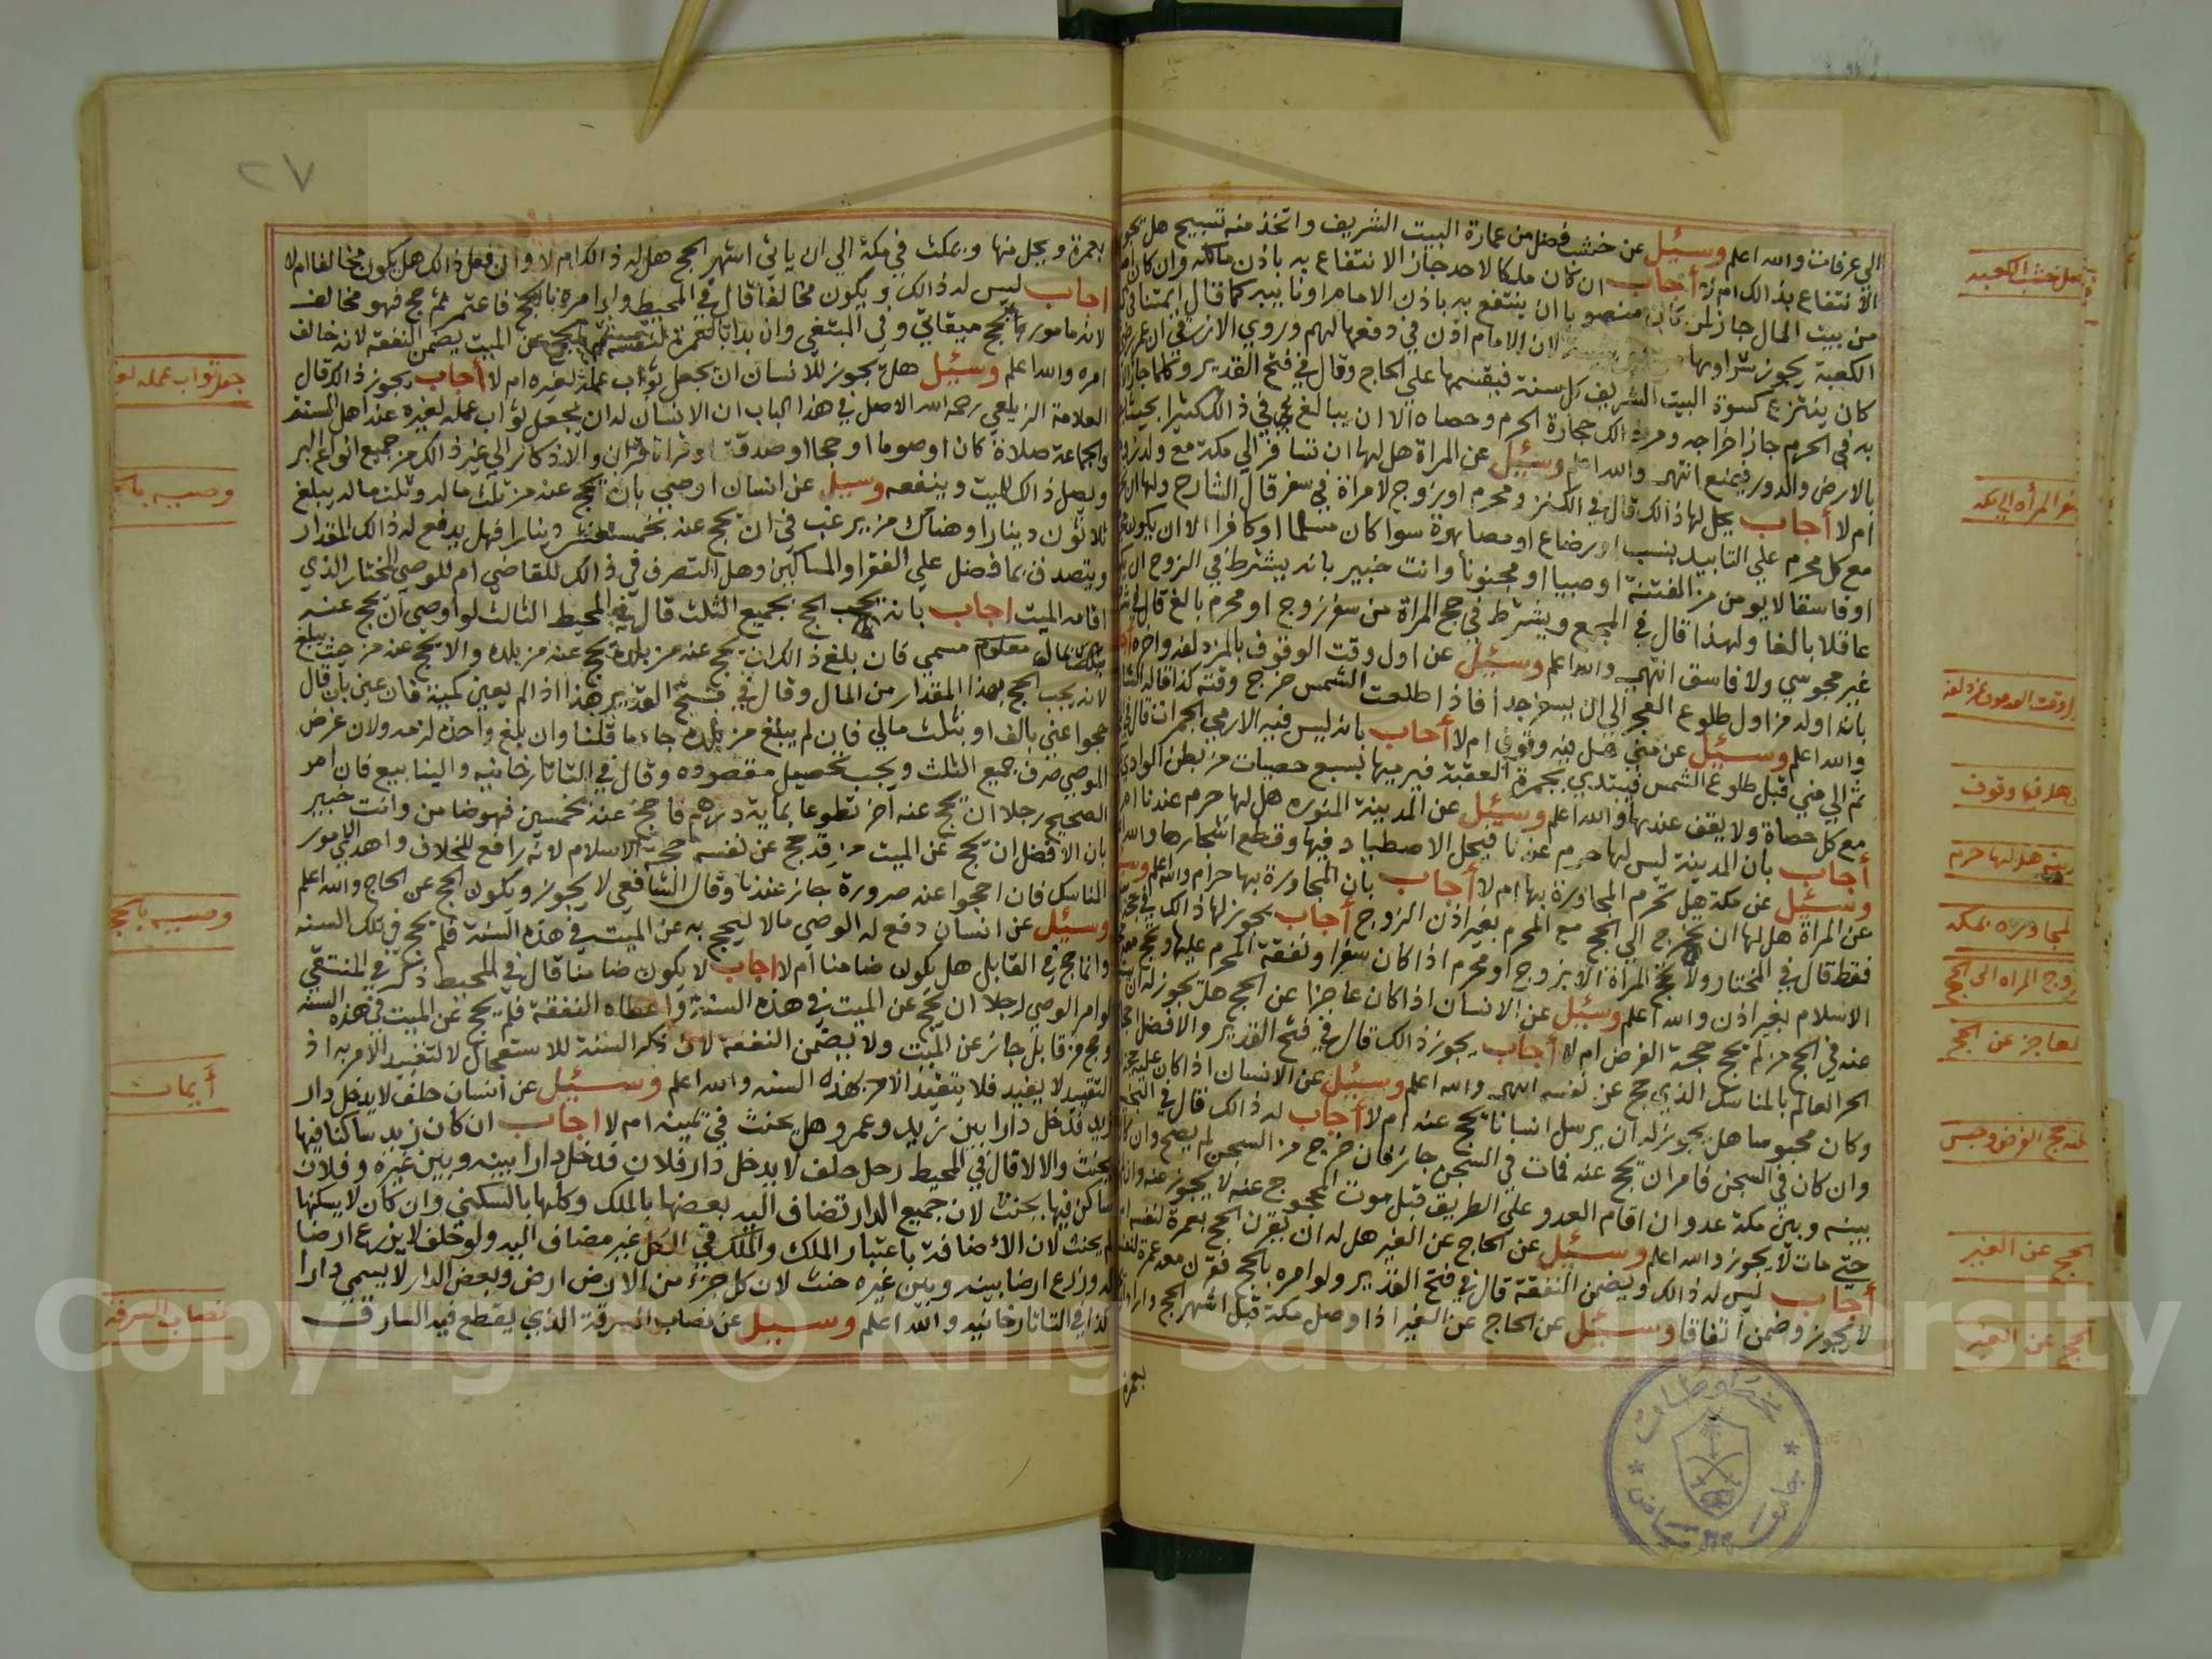 الي عرفات والله اعلم وسئيل عن خشب فضل من عمارة البيت الشريف واتخذ منه تسبيح هل يجوز
الانتفاع بذالك ام لا أجاب ان كان ملكا لاحد جاز الانتفاع به باذن مالكه وان كان
من بيت المال جاز لمن كان منصوبا ان ينتفع به باذن الامام او نايبه كما قال ايمتنا في
الكعبة يجوز شراوها لان الامام اذن في دفعها لهم وروي الازرقي ان عمر
كان ينتزع كسوة البيت الشريف كل سنة فيقسمها علي الحاج وقال في فتح القدير وكلما جاز
به في الحرم جاز اخراجه ومن ذالك حجارة الحرم وحصاه الا ان يبالغ في ذالك كثيرا بحيث
بالارض والدور فيمنع انتهى والله اعلم وسئيل عن المراة هل لها ان تسافر الي مكة مع ولد
ام لا أجاب يحل لها ذالك قال في الكنز ومحرم او زوج لامراة في سفر قال الشارح
مع كل محرم علي التابيد بنسب او رضاع او مصاهرة سوا كان مسلما او كافرا الا ان يكون
او فاسقا لا يومن من الفتنة او صبيا او مجنونا وانت خبير بانه يشترط في الزوج ان
عاقلا بالغا ولهذا قال في المجمع ويشترط في حج المراة من سفر زوج او محرم بالغ
غير مجوسي ولا فاسق انتهى والله اعلم وسئيل عن اول وقت الوقوف بالمزدلفه واخره
بانه اوله من اول طلوع الفجر الي ان يسفر جدا فاذا طلعت الشمس خرج وقته كذا قاله
والله اعلم وسئيل عن مني هل فيه وقوف ام لا أجاب بانه ليس فيه الا رمي الجمرات قال
ثم الي مني قبل طلوع الشمس فيبتدي بجمرة العقبة فيرميها بسبع حصيات من بطن الوادي
مع كل حصاة ولا يقف عندها والله اعلم وسئيل عن المدينة المنوره هل لها حرم عندنا ام
أجاب بان المدينة ليس لها حرم عندنا فيحل الاصطياد فيها وقطع اشجارها والله
وسئيل عن مكة هل تحرم المجاورة بها ام لا أجاب بان المجاورة بها حرام والله اعلم
عن المراة هل لها ان تخرج الي الحج مع المحرم بغير اذن الزوج أجاب يجوز لها ذالك في
فقط قال في المختار ولا تحج المراة الا بزوج او محرم اذا كان سفرا ونفقة المحرم عليها وتحج
الاسلام بغير اذن والله اعلم وسئيل عن الانسان اذا كان عاجزا عن الحج هل يجوز له ان
عنه في الحج من لم يحج حجة الفرض ام لا أجاب يجوز ذالك قال في فتح القدير والافضل
الحر العالم بالمناسك الذي حج عن نفسه انتهى والله اعلم وسئيل عن الانسان اذا كان عليه
وكان محبوسا هل يجوز له ان يرسل انسانا يحج عنه ام لا أجاب له ذالك قال في
وان كان في السجن فامر ان يحج عنه فمات في السجن جاز فان خرج من السجن لم يصح وان
بينه وبين مكة عدو ان اقام العدو علي الطريق قبل موت المحجوج عنه لا يجوز عنه
حتي مات لا يجوز والله اعلم وسئيل عن الحاج عن الغير هل له ان يقرن الحج بعمرة لنفسه
أجاب ليس له ذالك ويضمن النفقة قال في فتح القدير ولو امره بالحج فقرن معه عمرة
لا يجوز وضمن اتفاقا وسئيل عن الحاج عن الغير اذا وصل مكة قبل اشهر الحج
بعمرة
سفر المرأه الي مكه
وهل فيها وقوف
هل لها حرم
المجاوره بمكه
خروج المراه الي الحج
العاجز عن الحج
الحج عن الغير
الحج عن الغير
٢٧
بعمرة ويحل منها ويمكث في مكة الي ان ياتي اشهر الحج هل له ذالك ام لا وان فعل ذالك هل يكون مخالفا ام لا
اجاب ليس له ذالك ويكون مخالفا قال في المحيط ولو امره بالحج فاعتمر ثم حج فهو مخالف
لانه مامور بحج ميقاتي وفي المبتغي وان بدا بالعمرة لنفسه ثم بالحج عن الميت يضمن النفقة لانه خالف
امره والله اعلم وسئيل هل يجوز للانسان ان يجعل ثواب عمله لغيره ام لا أجاب يجوز ذالك قال
العلامة الزيلعي رحمه الله الاصل في هذا الباب ان الانسان له ان يجعل ثواب عمله لغيره عند اهل السنة
والجماعة صلاة كان او صوما او حجا او صدقة او قراة قران والاذكار الي غير ذالك من جميع انواع البر
ويصل ذالك للميت وينفعه وسيل عن انسان اوصي بان يحج عنه من ثلث ماله وثلث ماله يبلغ
ثلاثون دينارا وهناك من يرغب في ان يحج عنه بخمسة عشر دينارا فهل يدفع له ذالك المقدار
ويتصدق بما فضل علي الفقرا والمساكين وهل التصرف في ذالك للقاضي ام للوصي المختار الذي
اقامه الميت اجاب بانه يجب الحج بجميع الثلث قال في المحيط الثالث لو اوصي ان يحج عنه
بمال معلوم مسمي فان بلغ ذالك ان يحج عنه من بلده يحج عنه من بلده والا يحج عنه من حيث يبلغ
لانه يجب الحج بهذا المقدار من المال وقال في فتح القدير هذا اذا لم يعين كمية فان عين بان قال
حجوا عني بالف او بثلث مالي فان لم يبلغ من بلده جاء ما قلنا وان بلغ واحدة لزمه ولان غرض
الموصي صرف جميع الثلث ويجب تحصيل مقصوده وقال في التاتارخانيه والينابيع فان امر
الصحيح رجلا ان يحج عنه اخر تطوعا بماية درهم فاحج عنه بخمسين فهو ضامن وانت خبير
بان الافضل ان يحج عن الميت من قد حج عن نفسه حجة الاسلام لانه رافع للخلاف واهدي لامور
المناسك فان احجوا عنه صرورة جاز عندنا وقال الشافعي لا يجوز ويكون الحج عن الحاج والله اعلم
وسئيل عن انسان دفع له الوصي مالا ليحج به عن الميت في هذه السنة فلم يحج في تلك السنه
وانما حج في القابل هل يكون ضامنا ام لا اجاب لا يكون ضامنا قال في المحيط ذكر في المنتقي
لو امر الوصي رجلا ان يحج عن الميت في هذه السنة واعطاه النفقة فلم يحج عن الميت في هذه السنه
وحج من قابل جاز عن الميت ولا يضمن النفقة لان ذكر السنة للاستعجال لا لتقييد الامر به اذ
التقييد لا يفيد فلا يتقيد الامر بهذه السنه والله اعلم وسئيل عن انسان حلف لا يدخل دار
زيد فدخل دارا بين زيد وعمرو هل يحنث في يمينه ام لا اجاب ان كان زيد ساكنا فيها
يحنث والا لا قال في المحيط رجل حلف لا يدخل دار فلان فدخل دارا بينه وبين غيره وفلان
ساكن فيها يحنث لان جميع الدار تضاف اليه بعضها بالملك وكلها بالسكني وان كان لا يسكنها
لم يحنث لان الاضافة باعتبار الملك والملك في الكل غير مضاف اليه ولو حلف لا يزرع ارضا
له وزرع ارضا بينه وبين غيره حنث لان كل جزء من الارض ارض وبعض الدار لا يسمي دارا
كذا في التاتارخانيه والله اعلم وسيل عن نصاب السرقة الذي يقطع فيه السارق
جعل ثواب عمله
وصيه
وصيه بالحج
أيمان
نصاب السرقه
Copyright © King Saud University